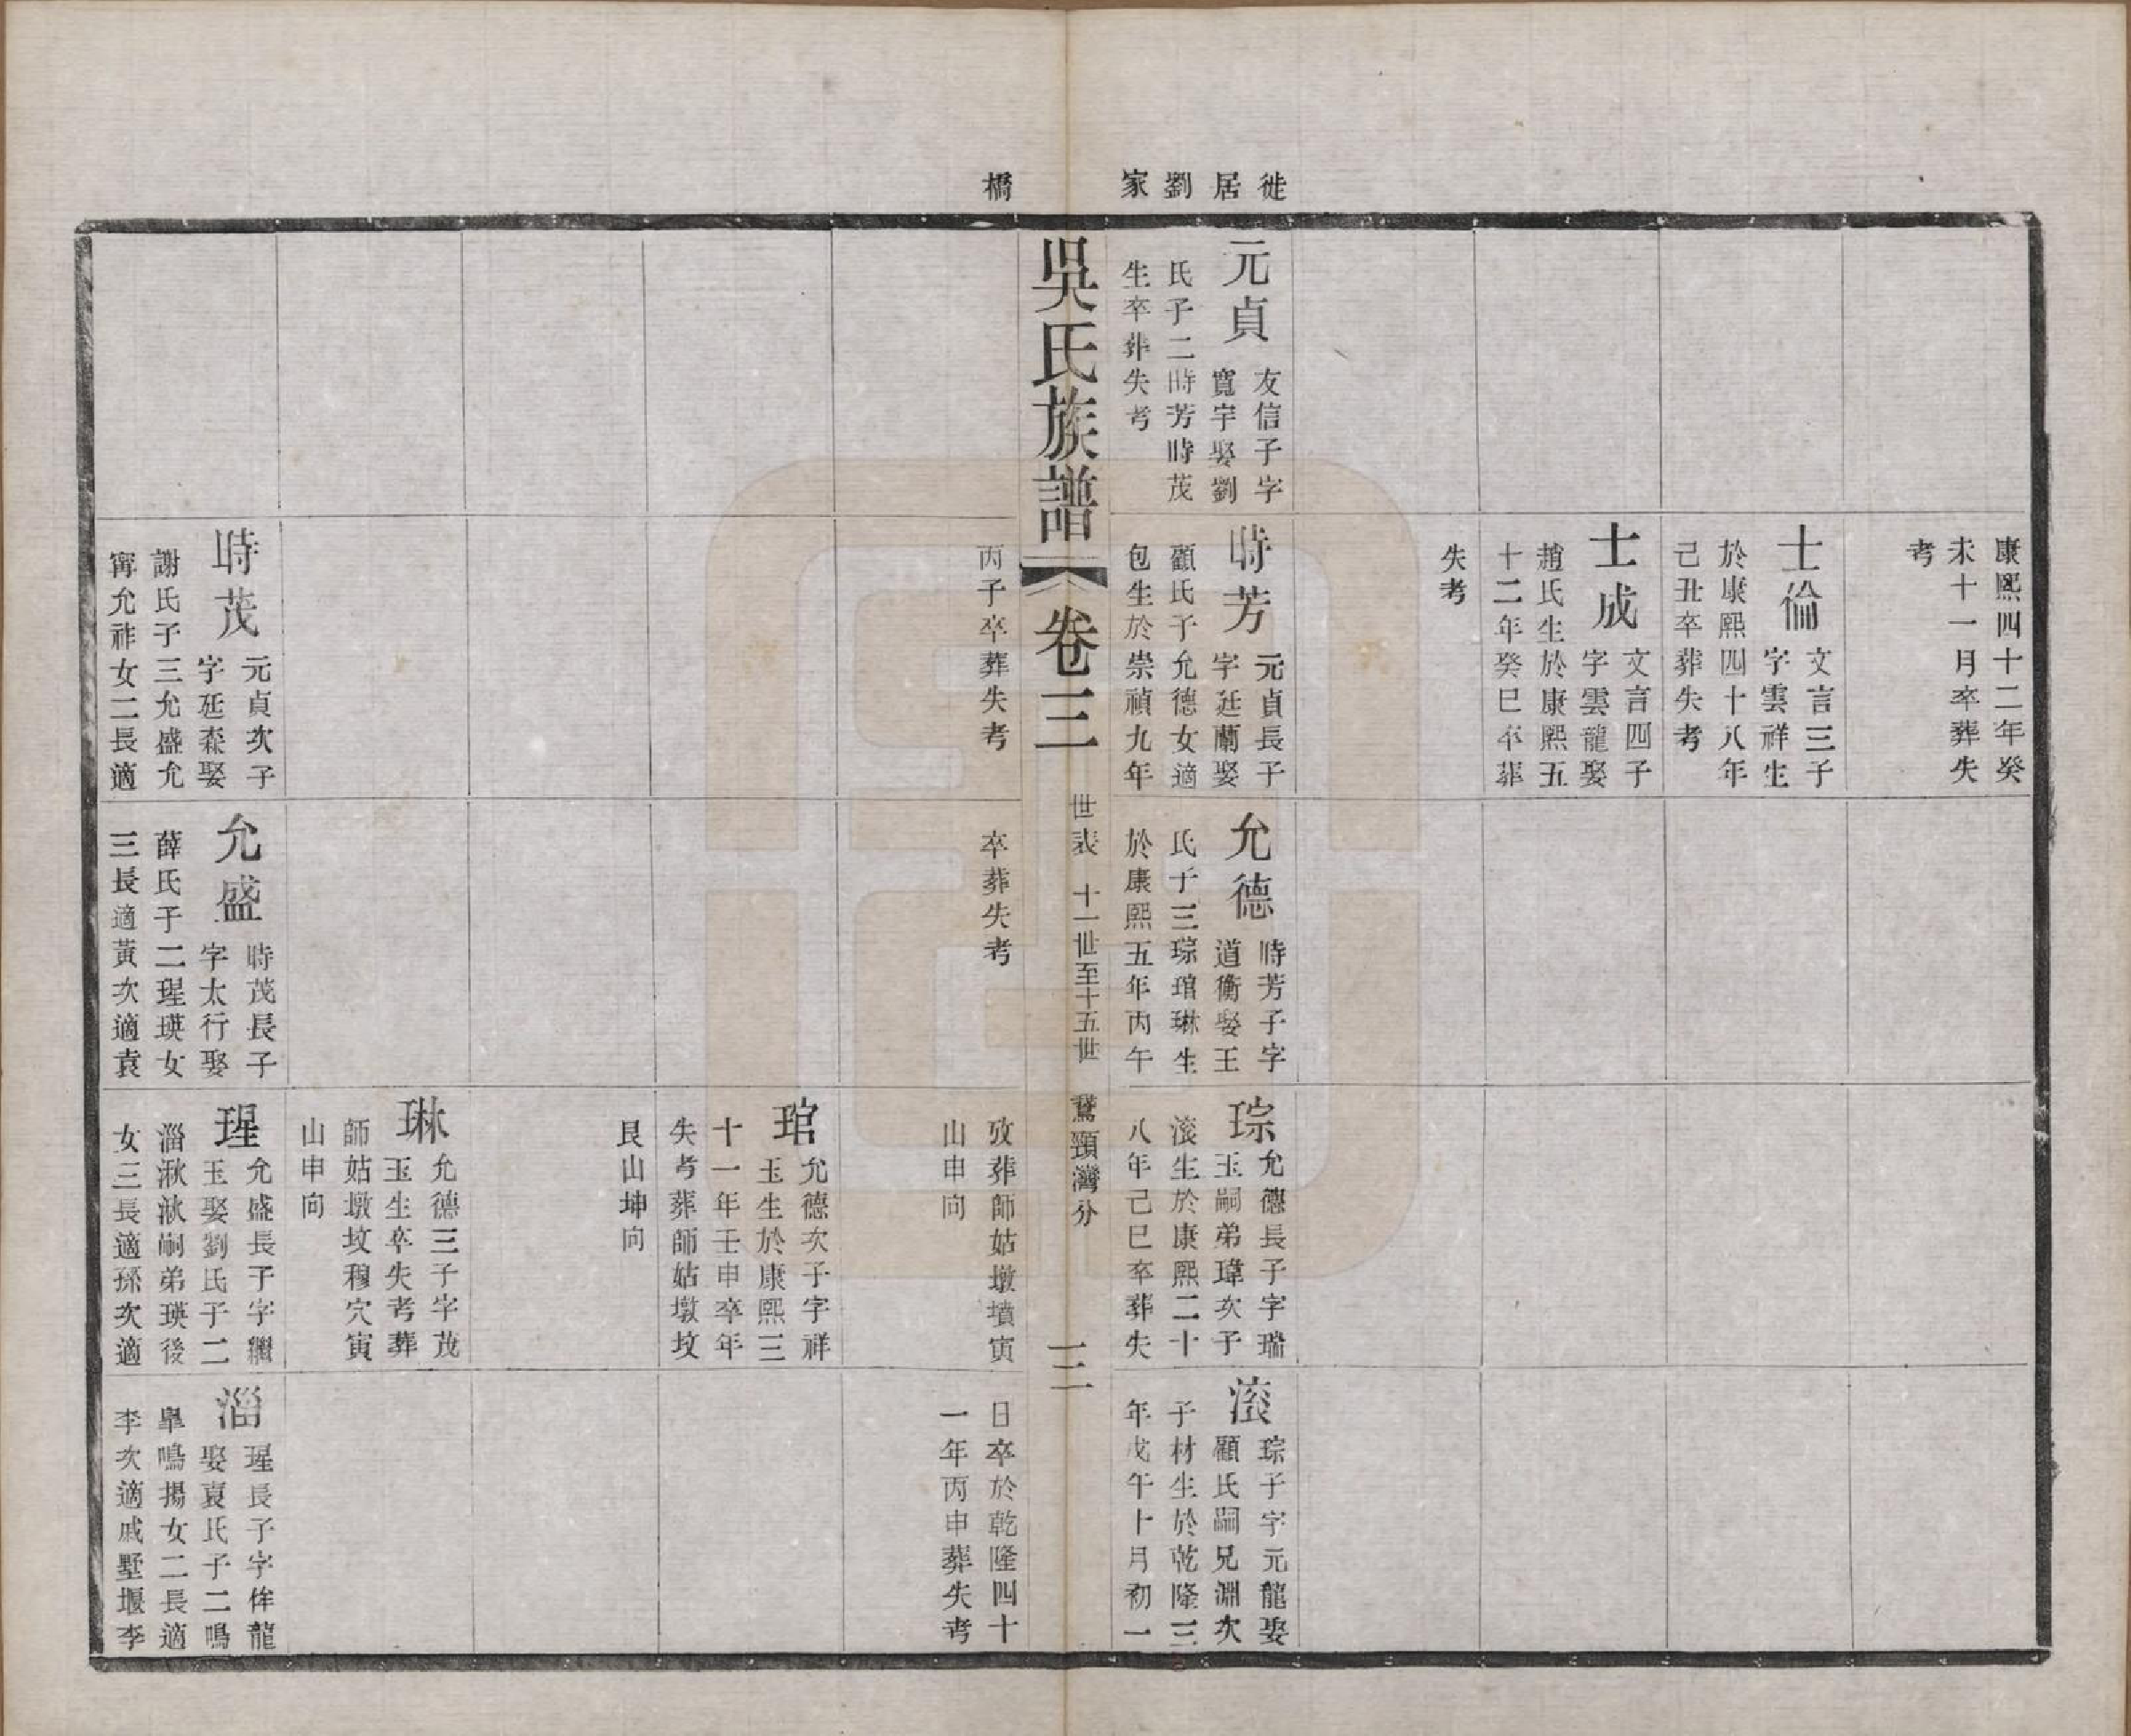 徙
居
劉
家
橋
元貞
友信子字
寬宇娶劉
氏子二時芳時茂
生卒葬失考
康熙四十二年癸
未十一月卒葬失
考
士倫
文言三子
字雲祥生
於康熙四十八年
己丑卒葬失考
士成
文言四子
字雲龍娶
趙氏生於康熙五
十二年癸巳卒葬
失考
時芳
元貞長子
字廷蘭娶
顧氏子允德女適
包生於崇禎九年
允德
時芳子字
道衡娶王
氏子三琮琯琳生
於康熙五年丙午
琮
允德長子字瑞
玉嗣弟瑋次子
滚生於康熙二十
八年己巳卒葬失
滚
琮子字元龍娶
顧氏嗣兄淵次
子材生於乾隆三
年戊午十月初一
吳氏族譜
卷三
世表
十一世至十五世
鵞頸灣分
三
丙子卒葬失考
卒葬失考
攷葬師姑墩墳寅
山申向
日卒於乾隆四十
一年丙申葬失考
琯
允德次子字祥
玉生於康熙三
十一年壬申卒年
失考葬師姑墩坟
艮山坤向
琳
允德三子字茂
玉生卒失考葬
師姑墩坟穆穴寅
山申向
時茂
元貞次子
字廷森娶
謝氏子三允盛允
甯允祚女二長適
允盛
時茂長子
字太行娶
薛氏子二瑆瑛女
三長適黃次適袁
瑆
允盛長子字繼
玉娶劉氏子二
淄湫湫嗣弟瑛後
女三長適孫次適
淄
瑆長子字侔龍
娶袁氏子二鳴
皐鳴揚女二長適
李次適戚墅堰李